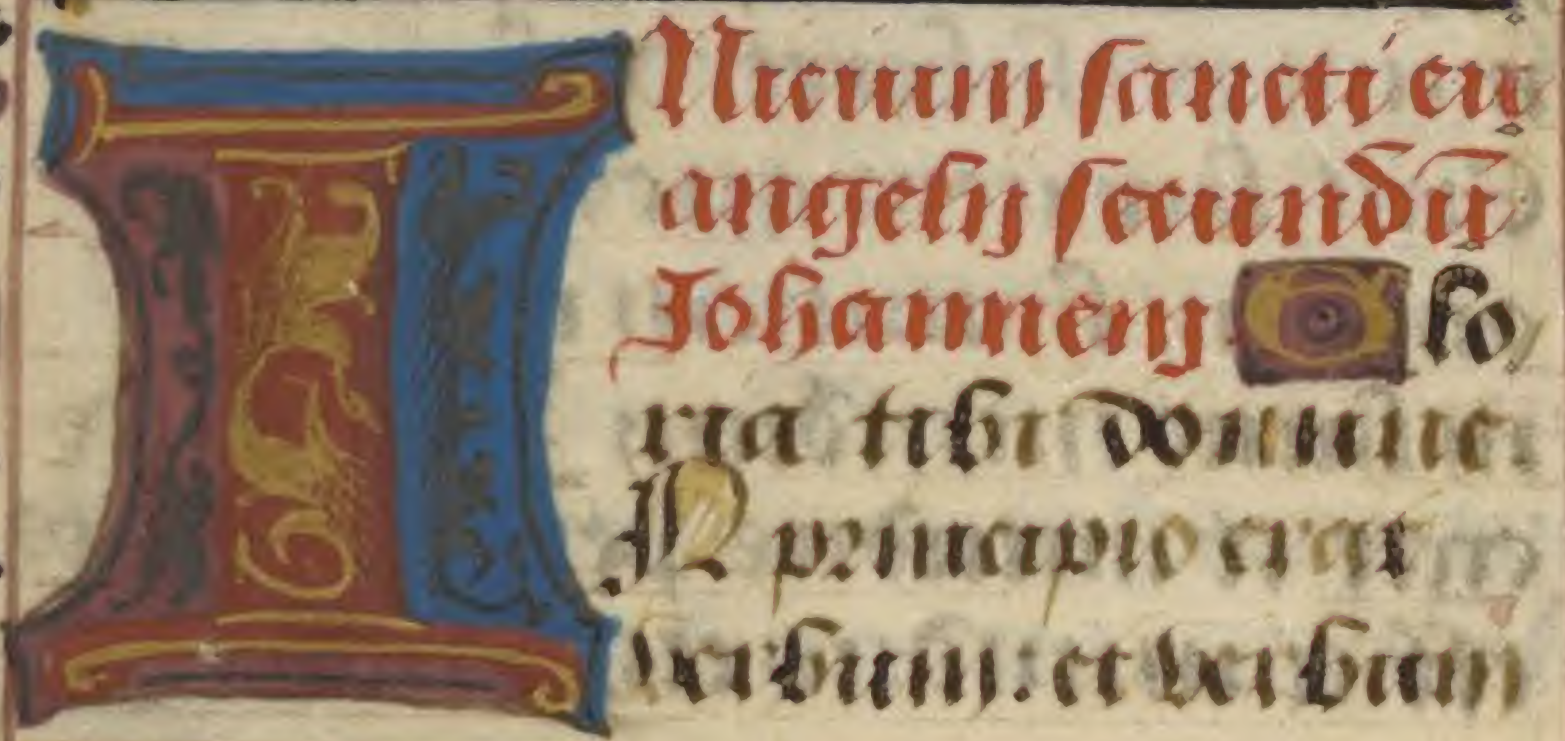 INicium sancti eu
angelij secundū
Johannem Glo
ria tibi domine
IN principio erat
verbum: et verbum